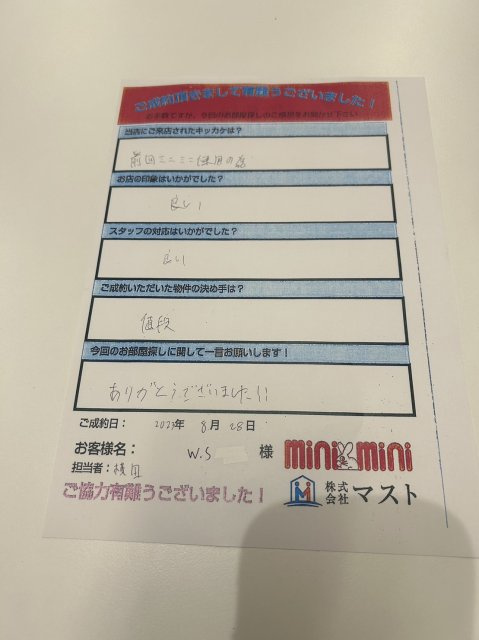 ご成約頂きまして有難うございました！
お手数ですが、今回のお部屋探しのご感想をお聞かせ下さい
当店にご来店されたキッカケは？
前回ミニミニ使用の為
お店の印象はいかがでした？
良い！
スタッフの対応はいかがでした？
良い
ご成約いただいた物件の決め手は？
値段
今回のお部屋探しに関して一言お願いします！
ありがとうございました!!
ご成約日： 2023年 8月 28日
お客様名： W.S 様
mini mini
担当者：横田
ご協力有難うございました！
株式会社 マスト